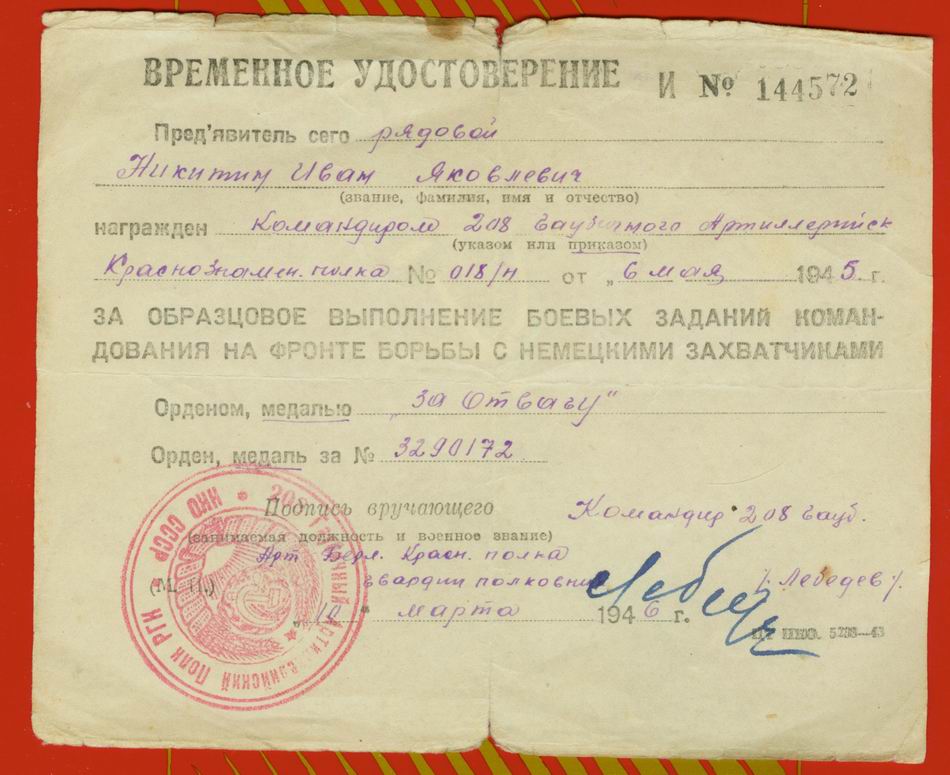 ВРЕМЕННОЕ УДОСТОВЕРЕНИЕ И № 144572
Пред'явитель сего рядовой
Никитин Иван Яковлевич
(звание, фамилия, имя и отчество)
награжден Командиром 208 Гаубичного Артиллерийск
(указом или приказом)
Краснознамен. полка № 018/н от „6 мая 1945 г.
ЗА ОБРАЗЦОВОЕ ВЫПОЛНЕНИЕ БОЕВЫХ ЗАДАНИЙ КОМАН-
ДОВАНИЯ НА ФРОНТЕ БОРЬБЫ С НЕМЕЦКИМИ ЗАХВАТЧИКАМИ
Орденом, медалью „За Отвагу"
Орден, медаль за № 3290172
Подпись вручающего Командир 208 гауб.
(занимаемая должность и военное звание)
Арт. Берл. Красн. полка
(М. П.) гвардии полковник /Лебедев/.
„10" марта 1946 г.
НКО СССР * 208 Полк РГК